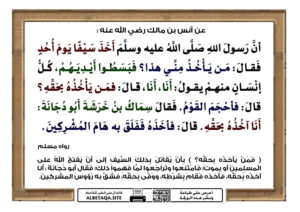 عن أنس بن مالك رضي الله عنه :
أنَّ رَسولَ اللهِ صَلَّى اللهُ عليه وسلَّمَ أَخَذَ سَيْفًا يَومَ أُحُدٍ
فَقالَ: مَن يَأْخُذُ مِنِّي هذا؟ فَبَسَطُوا أَيْدِيَهُمْ، كُلُّ
إنْسَانٍ منهمْ يقولُ: أَنَا، أَنَا، قالَ: فَمَن يَأْخُذُهُ بحَقِّهِ؟
قالَ: فأحْجَمَ القَوْمُ. فَقالَ سِمَاكُ بْنُ خَرَشَةَ أَبُو دُجَانَةَ:
أَنَا آخُذُهُ بحَقِّهِ. قالَ: فأخَذَهُ فَفَلَقَ به هَامَ المُشْرِكِينَ.
رواه مسلم
( فَمَن يَأْخُذُهُ بحَقِّهِ؟ ) بأن يُقاتل بذلك السيف إلى أن يفتح الله على
المسلمين أو يموت؛ فامتنعوا وتراجعوا لما فهموا ذلك؛ فقال أبو دجانة : أنا
آخذه بحقه، فأخذه فقام بشرطه، ووفّى بحقه، فشق به رؤوس المشركين.
احرص على طباعة
ونشر هذه الورقة
ALBETAQA.SITE